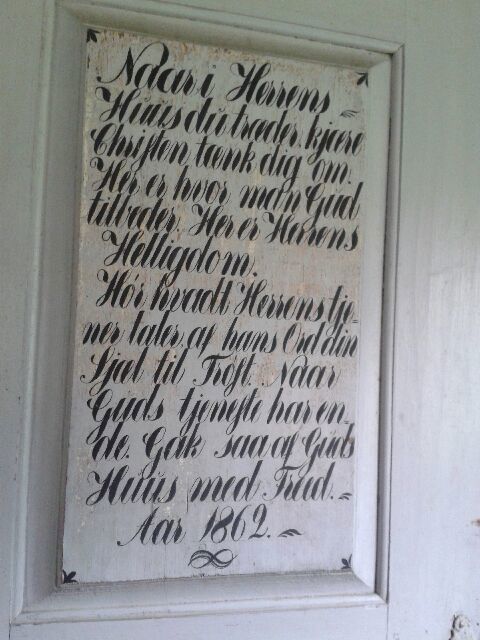 Naar i Herrens
Huus du træder, kjære
Christen tænk dig om.
Her er hvor man Gud
tilbeder. Her er Herrens
Helligdom.
Hør hvadt Herrens tje-
ner taler, af hans Ord din
Sjæl til Trøst. Naar
Guds tjeneste har en-
de. Gak saa af Guds
Huus med Fred.
Aar 1862.